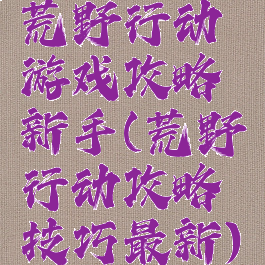 荒野行动
游戏攻略
新手(荒野
行动攻略
技巧最新)